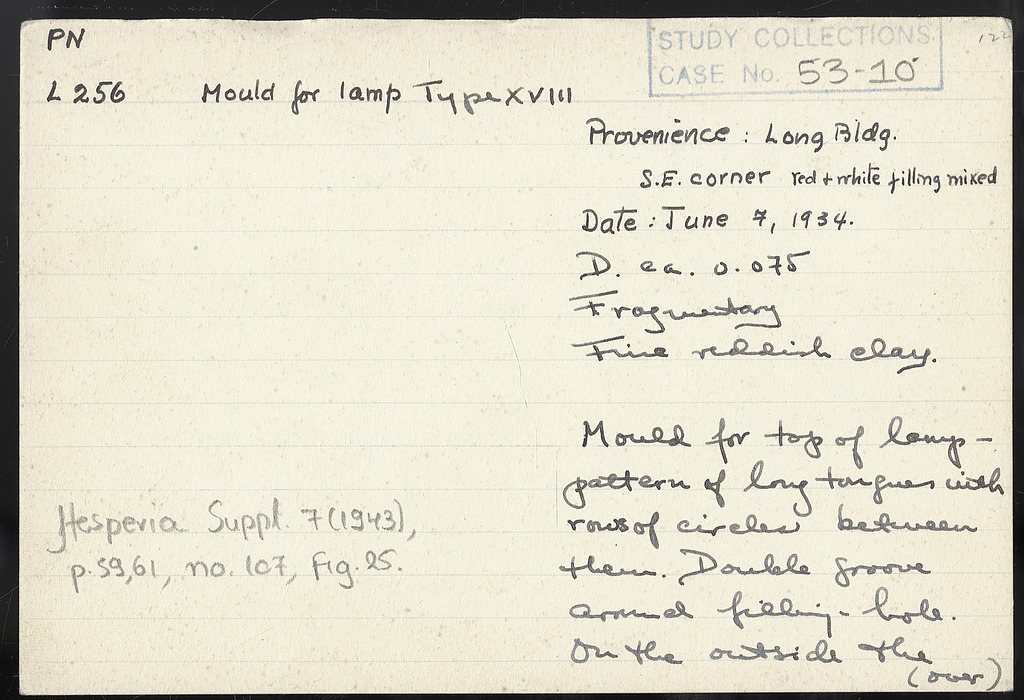 PN
STUDY COLLECTIONS
CASE No. 53-10
122
L 256 Mould for lamp Type XVIII
Provenience : Long Bldg.
S.E. corner red + white filling mixed
Date : June 7, 1934.
D. ca. 0.075
Fragmentary
Fine reddish clay.
Mould for top of lamp -
pattern of long tongues with
rows of circles between
them. Double groove
around filling-hole.
On the outside the
(over)
Hesperia Suppl. 7 (1943),
p. 59,61, no. 107, fig. 25.